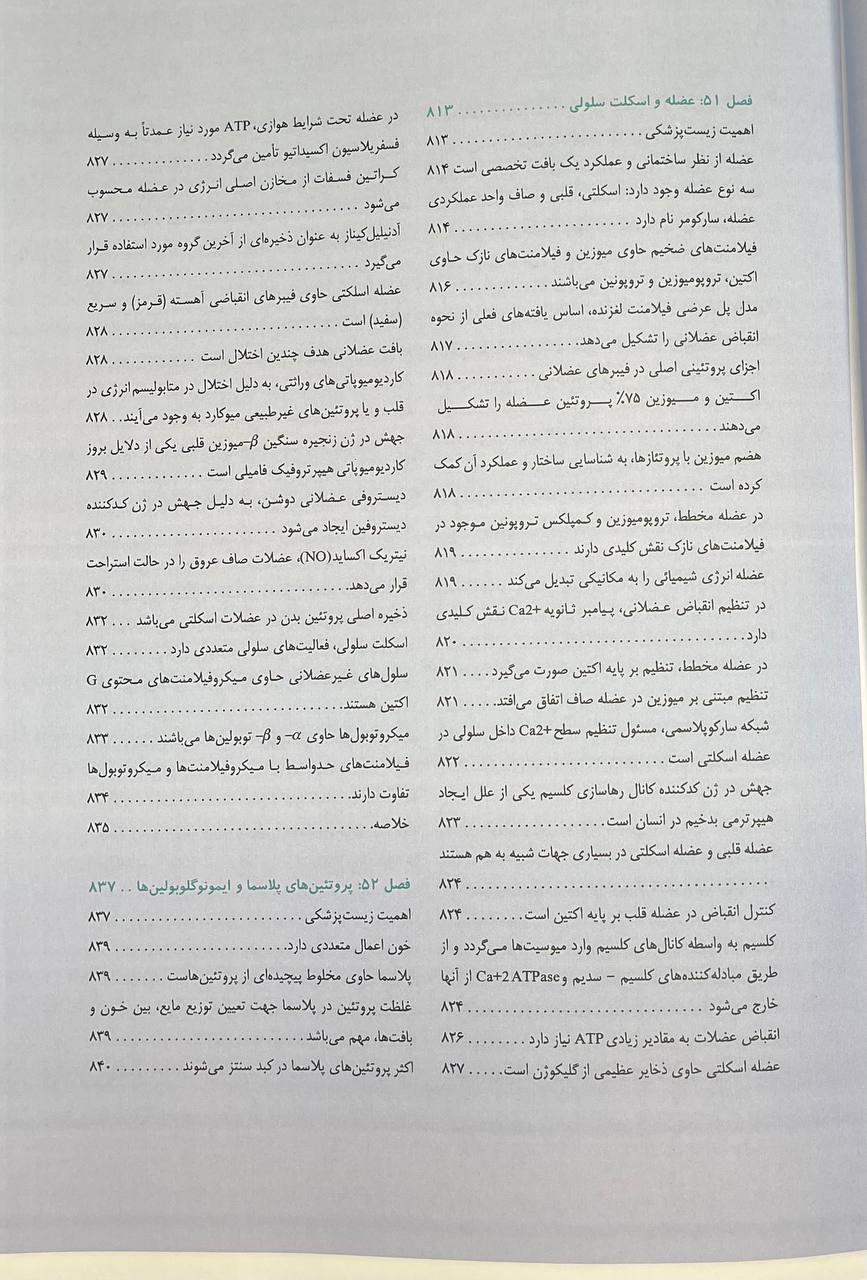 فصل ۵۱: عضله و اسکلت سلولی . . . . . . . . . . . . . . . ۸۱۳
اهمیت زیست‌پزشکی . . . . . . . . . . . . . . . . . . . . . . . . . ۸۱۳
عضله از نظر ساختمانی و عملکرد یک بافت تخصصی است ۸۱۴
سه نوع عضله وجود دارد: اسکلتی، قلبی و صاف واحد عملکردی
عضله، سارکومر نام دارد . . . . . . . . . . . . . . . . . . . . . . . ۸۱۴
فیلامنت‌های ضخیم حاوی میوزین و فیلامنت‌های نازک حاوی
اکتین، تروپومیوزین و تروپونین می‌باشند . . . . . . . . . . . . ۸۱۶
مدل پل عرضی فیلامنت لغزنده، اساس یافته‌های فعلی از نحوه
انقباض عضلانی را تشکیل می‌دهد. . . . . . . . . . . . . . . . . ۸۱۷
اجزای پروتئینی اصلی در فیبرهای عضلانی . . . . . . . . . . . ۸۱۸
اکتین و میوزین ۷۵٪ پروتئین عضله را تشکیل
می‌دهند . . . . . . . . . . . . . . . . . . . . . . . . . . . . . . . . . . ۸۱۸
هضم میوزین با پروتئازها، به شناسایی ساختار و عملکرد آن کمک
کرده است . . . . . . . . . . . . . . . . . . . . . . . . . . . . . . . . ۸۱۸
در عضله مخطط، تروپومیوزین و کمپلکس تروپونین موجود در
فیلامنت‌های نازک نقش کلیدی دارند . . . . . . . . . . . . . . . ۸۱۹
عضله انرژی شیمیائی را به مکانیکی تبدیل می‌کند . . . . . . ۸۱۹
در تنظیم انقباض عضلانی، پیامبر ثانویه Ca2+ نقش کلیدی
دارد. . . . . . . . . . . . . . . . . . . . . . . . . . . . . . . . . . . . . ۸۲۰
در عضله مخطط، تنظیم بر پایه اکتین صورت می‌گیرد . . . . ۸۲۱
تنظیم مبتنی بر میوزین در عضله صاف اتفاق می‌افتد. . . . . ۸۲۱
شبکه سارکوپلاسمی، مسئول تنظیم سطح Ca2+ داخل سلولی در
عضله اسکلتی است . . . . . . . . . . . . . . . . . . . . . . . . . . ۸۲۲
جهش در ژن کدکننده کانال رهاسازی کلسیم یکی از علل ایجاد
هیپرترمی بدخیم در انسان است. . . . . . . . . . . . . . . . . . . ۸۲۳
عضله قلبی و عضله اسکلتی در بسیاری جهات شبیه به هم هستند
. . . . . . . . . . . . . . . . . . . . . . . . . . . . . . . . . . . . . . . . ۸۲۴
کنترل انقباض در عضله قلب بر پایه اکتین است. . . . . . . . ۸۲۴
کلسیم به واسطه کانال‌های کلسیم وارد میوسیت‌ها می‌گردد و از
طریق مبادله‌کننده‌های کلسیم – سدیم و Ca+2 ATPase از آنها
خارج می‌شود . . . . . . . . . . . . . . . . . . . . . . . . . . . . . . . ۸۲۴
انقباض عضلات به مقادیر زیادی ATP نیاز دارد . . . . . . . . ۸۲۶
عضله اسکلتی حاوی ذخایر عظیمی از گلیکوژن است. . . . . ۸۲۷
در عضله تحت شرایط هوازی، ATP مورد نیاز عمدتاً به وسیله
فسفریلاسیون اکسیداتیو تأمین می‌گردد . . . . . . . . . . . . . ۸۲۷
کراتین فسفات از مخازن اصلی انرژی در عضله محسوب
می‌شود . . . . . . . . . . . . . . . . . . . . . . . . . . . . . . . . . . ۸۲۷
آدنیلیل‌کیناز به عنوان ذخیره‌ای از آخرین گروه مورد استفاده قرار
می‌گیرد . . . . . . . . . . . . . . . . . . . . . . . . . . . . . . . . . . ۸۲۷
عضله اسلکتی حاوی فیبرهای انقباضی آهسته (قرمز) و سریع
(سفید) است . . . . . . . . . . . . . . . . . . . . . . . . . . . . . . . ۸۲۸
بافت عضلانی هدف چندین اختلال است . . . . . . . . . . . . ۸۲۸
کاردیومیوپاتی‌های وراثتی، به دلیل اختلال در متابولیسم انرژی در
قلب و یا پروتئین‌های غیرطبیعی میوکارد به وجود می‌آیند. . ۸۲۸
جهش در ژن زنجیره سنگین β-میوزین قلبی یکی از دلایل بروز
کاردیومیوپاتی هیپرتروفیک فامیلی است . . . . . . . . . . . . . ۸۲۹
دیستروفی عضلانی دوشن، به دلیل جهش در ژن کدکننده
دیستروفین ایجاد می‌شود . . . . . . . . . . . . . . . . . . . . . . ۸۳۰
نیتریک اکساید(NO)، عضلات صاف عروق را در حالت استراحت
قرار می‌دهد. . . . . . . . . . . . . . . . . . . . . . . . . . . . . . . . ۸۳۰
ذخیره اصلی پروتئین بدن در عضلات اسکلتی می‌باشد . . . ۸۳۲
اسکلت سلولی، فعالیت‌های سلولی متعددی دارد . . . . . . . . ۸۳۲
سلول‌های غیرعضلانی حاوی میکروفیلامنت‌های محتوی G
اکتین هستند. . . . . . . . . . . . . . . . . . . . . . . . . . . . . . . ۸۳۲
میکروتوبول‌ها حاوی α- و β- توبولین‌ها می‌باشند . . . . . . ۸۳۳
فیلامنت‌های حدواسط با میکروفیلامنت‌ها و میکروتوبول‌ها
تفاوت دارند. . . . . . . . . . . . . . . . . . . . . . . . . . . . . . . . ۸۳۴
خلاصه. . . . . . . . . . . . . . . . . . . . . . . . . . . . . . . . . . . ۸۳۵
فصل ۵۲: پروتئین‌های پلاسما و ایمونوگلوبولین‌ها . . ۸۳۷
اهمیت زیست‌پزشکی . . . . . . . . . . . . . . . . . . . . . . . . . ۸۳۷
خون اعمال متعددی دارد. . . . . . . . . . . . . . . . . . . . . . . ۸۳۹
پلاسما حاوی مخلوط پیچیده‌ای از پروتئین‌هاست . . . . . . . ۸۳۹
غلظت پروتئین در پلاسما جهت تعیین توزیع مایع، بین خون و
بافت‌ها، مهم می‌باشد . . . . . . . . . . . . . . . . . . . . . . . . . ۸۳۹
اکثر پروتئین‌های پلاسما در کبد سنتز می‌شوند . . . . . . . . . ۸۴۰